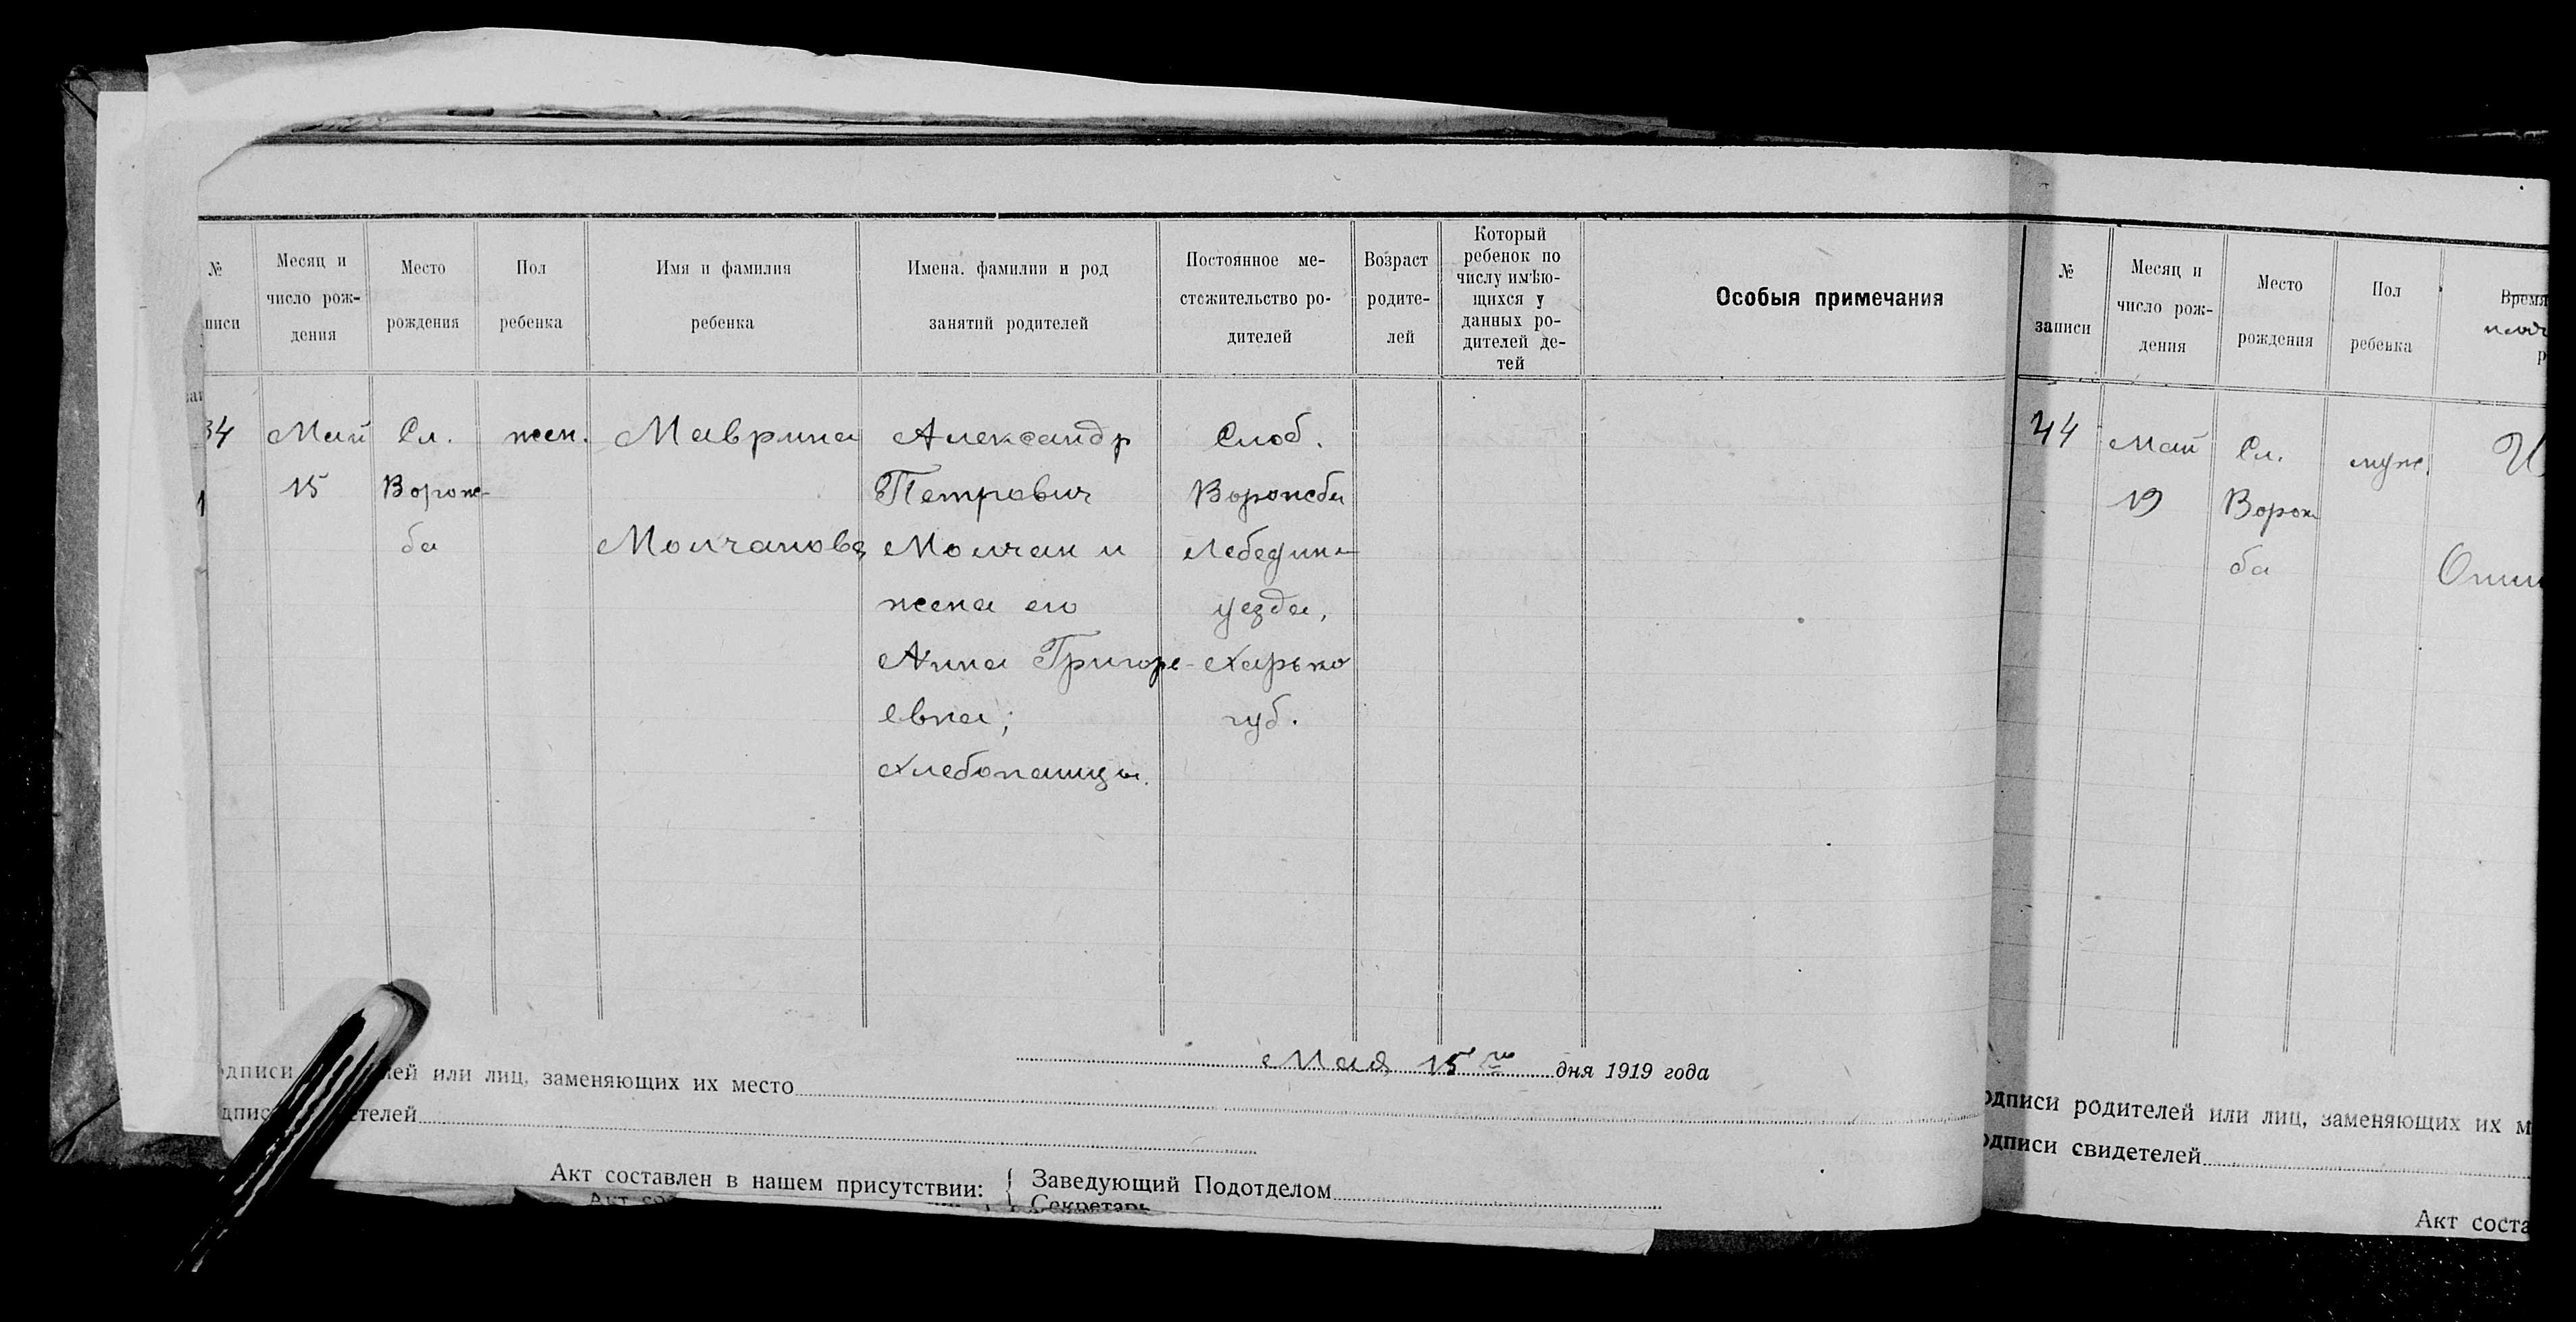 №
писи
Месяц и
число рож-
дения
Место
рождения
Пол
ребенка
Имя и фамилия
ребенка
Имена, фамилии и род
занятий родителей
Постоянное ме-
стожительство ро-
дителей
Возраст
родите-
лей
Который
ребенок по
числу имѣю-
щихся у
данных ро-
дителей де-
тей
Особыя примечания
34
Май
15
Сл.
Ворож-
ба
жен.
Маврина
Молчанова
Александр
Петрович
Молчан и
жена его
Анна Григорь-
евна;
хлебопашцы.
Слоб.
Ворожбы
Лебедин-
уезда,
Харько
губ.
Мая 15го дня 1919 года
одписи лей или лиц, заменяющих их место
дпис етелей
Акт составлен в нашем присутствии: { Заведующий Подотделом
Секретарь
№
записи
Месяц и
число рож-
дения
Место
рождения
Пол
ребенка
Время
р
44
Май
19
Сл.
Ворож
ба
муж.
И
одписи родителей или лиц, заменяющих их м
одписи свидетелей
Акт соста